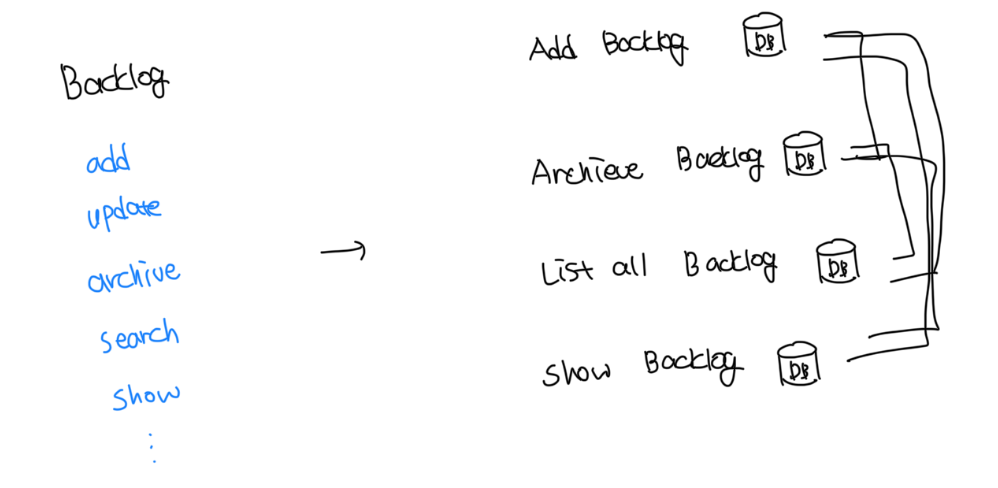 Backlog
add
update
archive
search
show
Add Backlog DB
Archieve Backlog DB
List all Backlog DB
Show Backlog DB